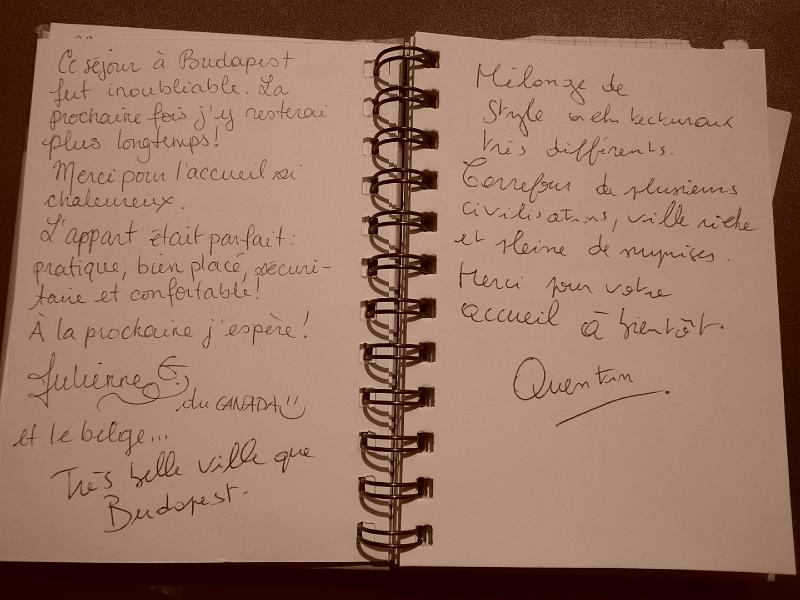 Ce séjour à Budapest
fut inoubliable. La
prochaine fois j'y resterai
plus longtemps!
Merci pour l'accueil si
chaleureux.
L'appart était parfait:
pratique, bien placé, sécuri-
taire et confortable!
À la prochaine j'espère!
Julienne G.
du CANADA
et le belge...
Très belle ville que
Budapest.
Mélange de
style architecturaux
très différents.
Carrefour de plusieurs
civilisations, ville riche
et pleine de surprises.
Merci pour votre
accueil à bientôt.
Quentin